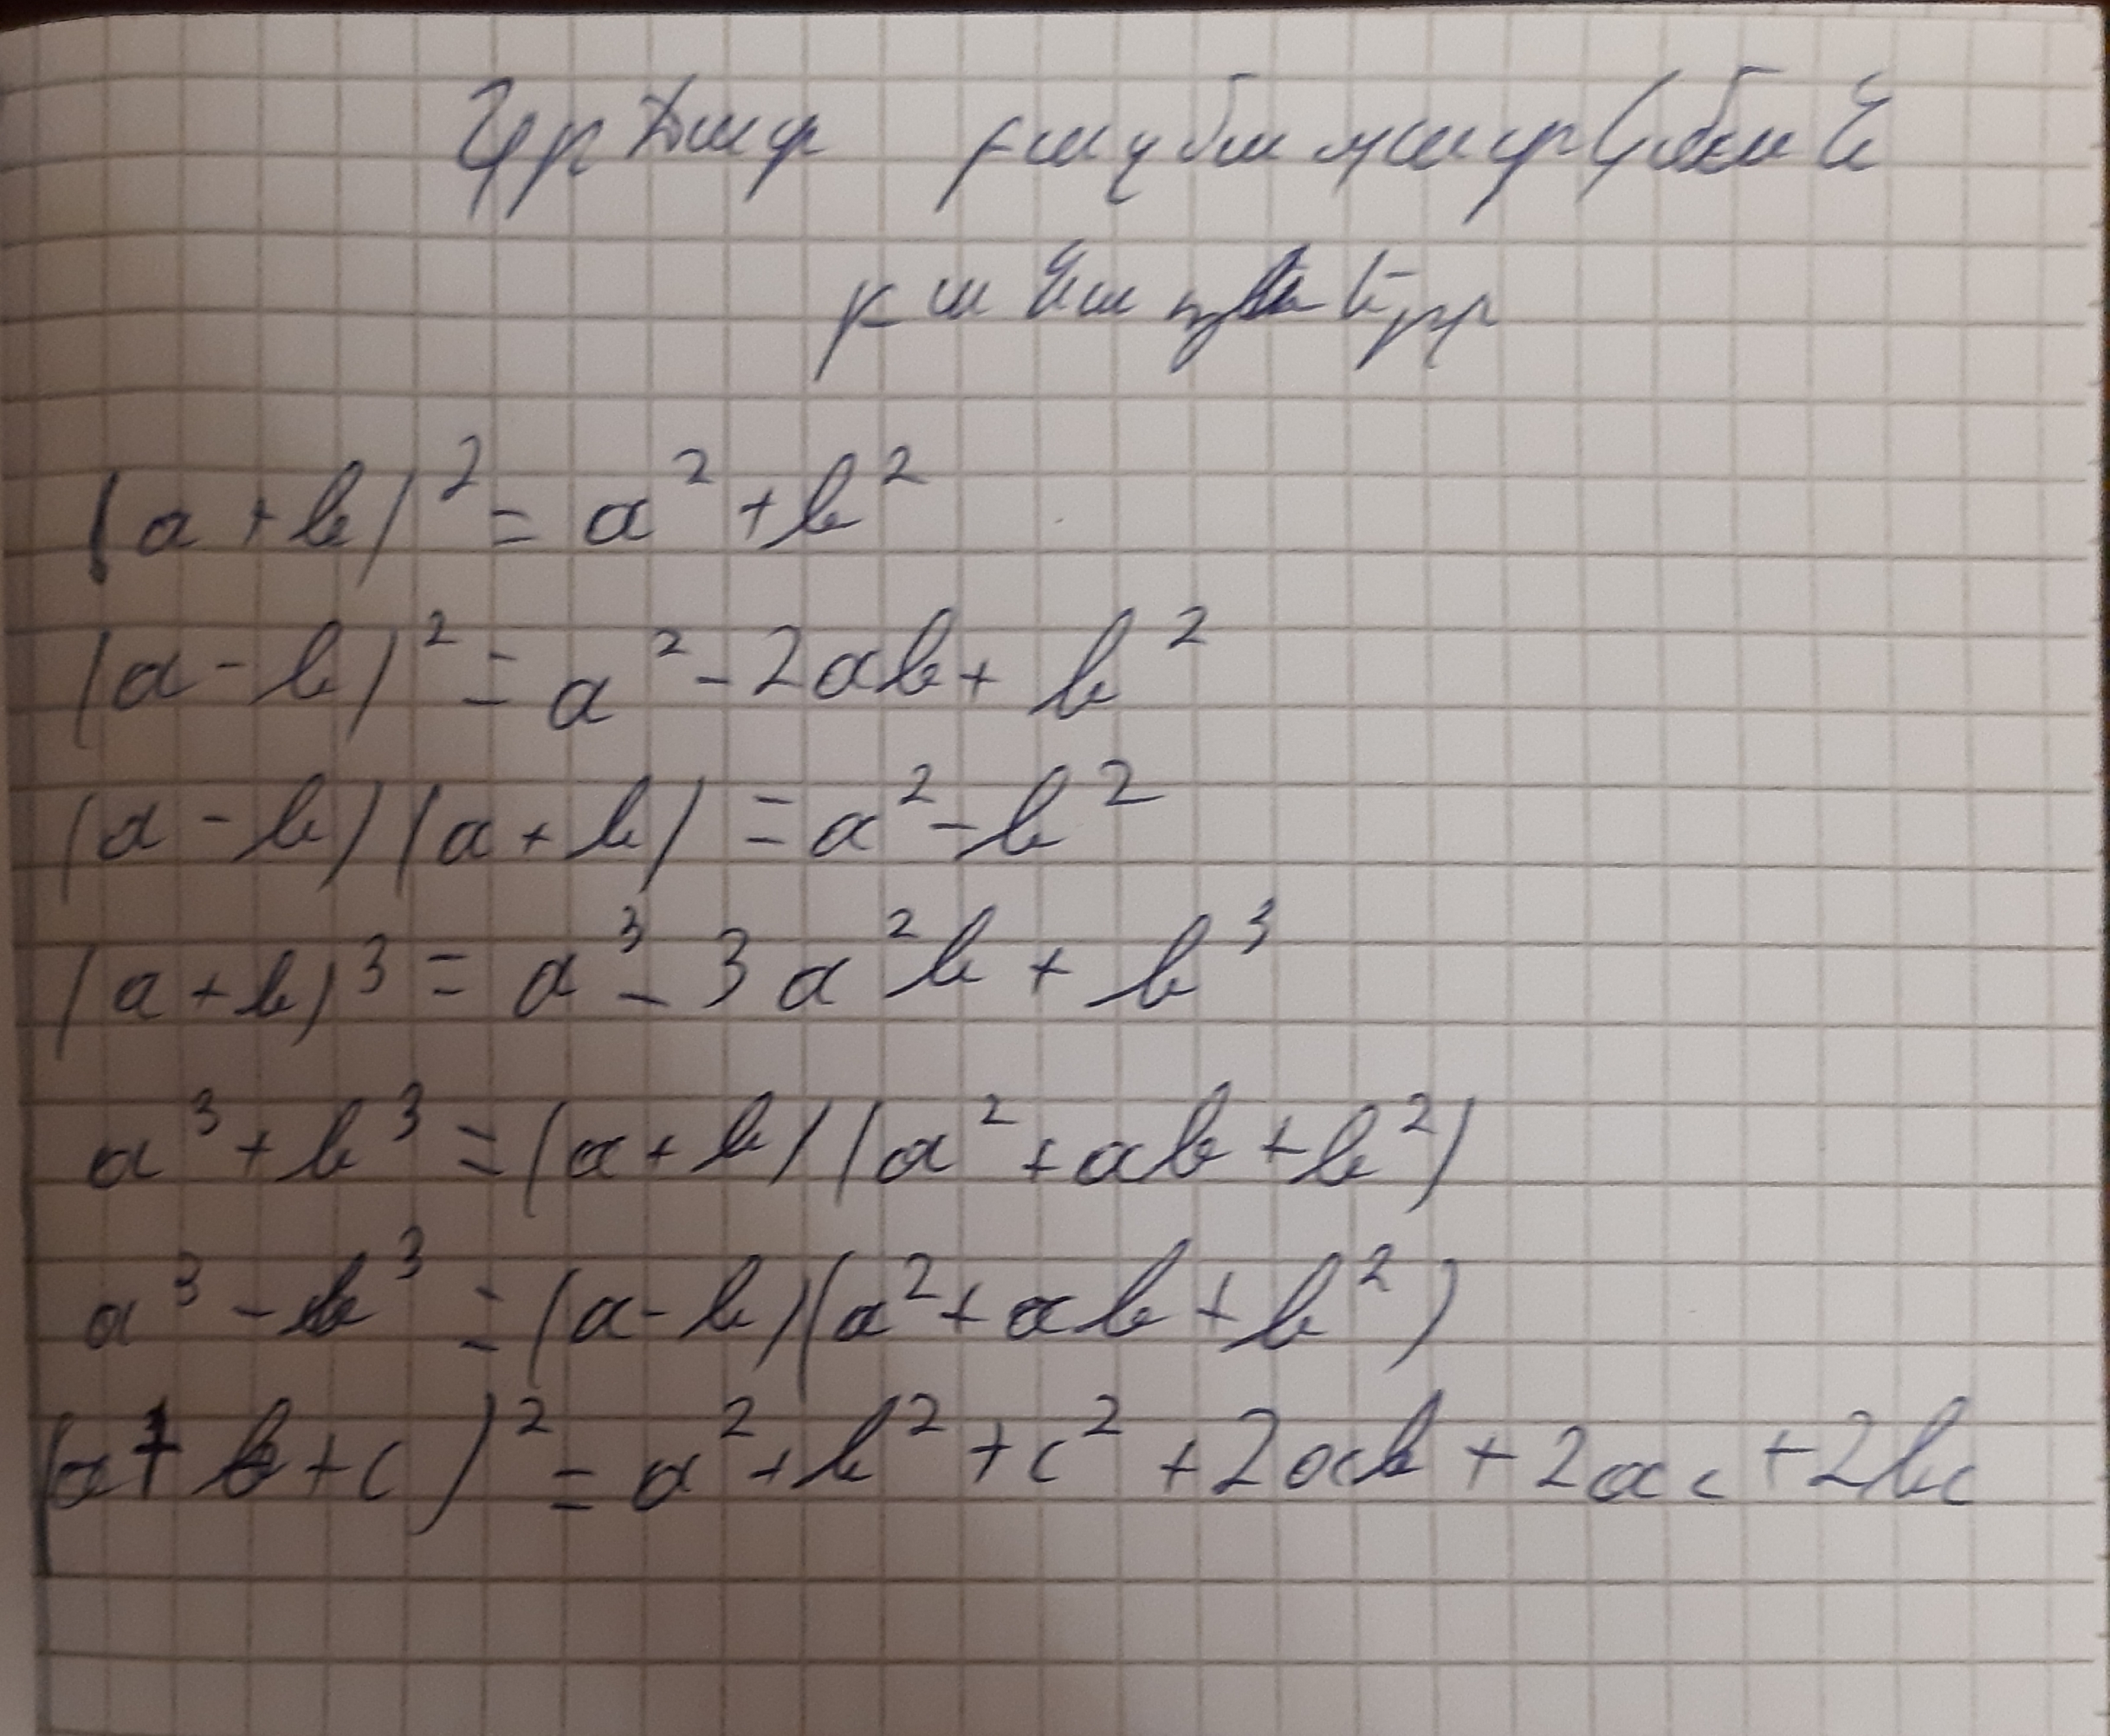 Կրճատ բազմապատկման
բանաձևերը
(a+b)² = a² + b²
(a-b)² = a² - 2ab + b²
(a-b)(a+b) = a² - b²
(a+b)³ = a³ - 3a²b + b³
a³ + b³ = (a+b)(a² + ab + b²)
a³ - b³ = (a-b)(a² + ab + b²)
(a+b+c)² = a² + b² + c² + 2ab + 2ac + 2bc